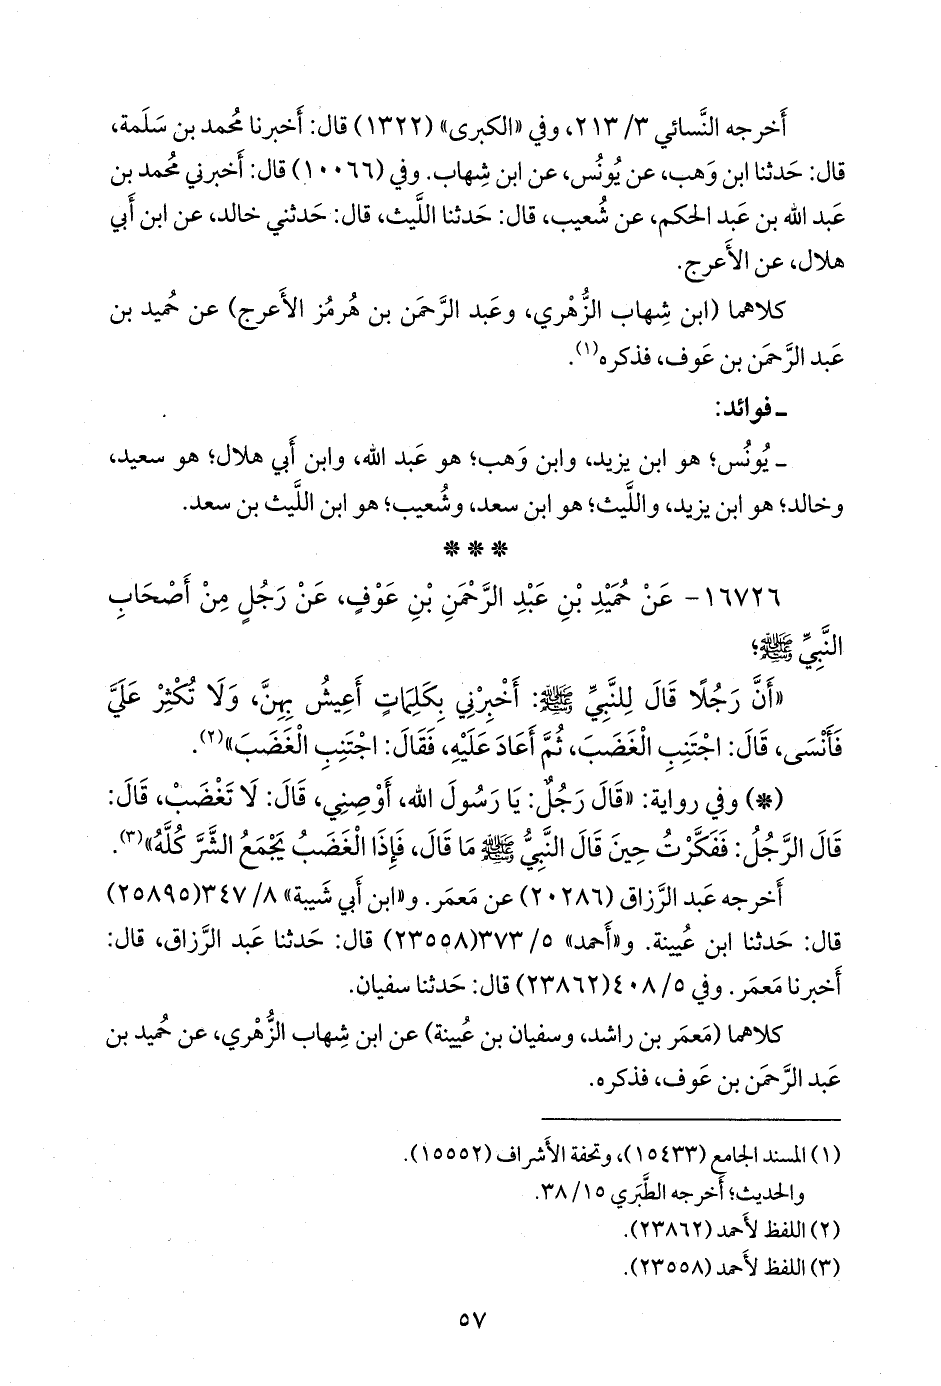 أَخرجه النَّسائي ٣/ ٢١٣، وفي «الكبرى» (١٣٢٢) قال: أَخبرنا مُحمد بن سَلَمة،
قال: حَدثنا ابن وَهب، عن يُونُس، عن ابن شِهاب. وفي (١٠٠٦٦) قال: أَخبرني مُحمد بن
عَبد الله بن عَبد الحكم، عن شُعيب، قال: حَدثنا اللَّيث، قال: حَدثني خالد، عن ابن أَبي
هلال، عن الأَعرج.
كلاهما (ابن شِهاب الزُّهْري، وعَبد الرَّحمَن بن هُرمُز الأَعرج) عن حُميد بن
عَبد الرَّحمَن بن عَوف، فذكره(١).
ـ فوائد:
ـ يُونُس؛ هو ابن يزيد، وابن وَهب؛ هو عَبد الله، وابن أَبي هلال؛ هو سعيد،
وخالد؛ هو ابن يزيد، واللَّيث؛ هو ابن سعد، وشُعيب؛ هو ابن اللَّيث بن سعد.
* * *
١٦٧٢٦- عَنْ حُمَيْدِ بْنِ عَبْدِ الرَّحْمَنِ بْنِ عَوْفٍ، عَنْ رَجُلٍ مِنْ أَصْحَابِ
النَّبِيِّ ﷺ؛
«أَنَّ رَجُلًا قَالَ لِلنَّبِيِّ ﷺ: أَخْبِرْنِي بِكَلِمَاتٍ أَعِيشُ بِهِنَّ، وَلَا تُكْثِرْ عَلَيَّ
فَأَنْسَى، قَالَ: اجْتَنِبِ الْغَضَبَ، ثُمَّ أَعَادَ عَلَيْهِ، فَقَالَ: اجْتَنِبِ الْغَضَبَ»(٢).
(*) وفي رواية: «قَالَ رَجُلٌ: يَا رَسُولَ الله، أَوْصِنِي، قَالَ: لَا تَغْضَبْ، قَالَ:
قَالَ الرَّجُلُ: فَفَكَّرْتُ حِينَ قَالَ النَّبِيُّ ﷺ مَا قَالَ، فَإِذَا الْغَضَبُ يَجْمَعُ الشَّرَّ كُلَّهُ»(٣).
أَخرجه عَبد الرَّزاق (٢٠٢٨٦) عن مَعمَر. و«ابن أَبي شَيبة» ٨/ ٣٤٧(٢٥٨٩٥)
قال: حَدثنا ابن عُيينة. و«أَحمد» ٥/ ٣٧٣(٢٣٥٥٨) قال: حَدثنا عَبد الرَّزاق، قال:
أَخبرنا مَعمَر. وفي ٥/ ٤٠٨(٢٣٨٦٢) قال: حَدثنا سفيان.
كلاهما (مَعمَر بن راشد، وسفيان بن عُيينة) عن ابن شِهاب الزُّهْري، عن حُميد بن
عَبد الرَّحمَن بن عَوف، فذكره.
(١) المسند الجامع (١٥٤٣٣)، وتحفة الأَشراف (١٥٥٥٢).
والحديث؛ أَخرجه الطَّبَري ١٥/ ٣٨.
(٢) اللفظ لأَحمد (٢٣٨٦٢).
(٣) اللفظ لأَحمد (٢٣٥٥٨).
٥٧